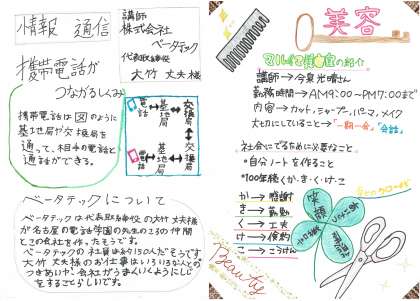 情報 通信
講師
株式会社
ベータテック
代表取締役
大竹 丈夫様
携帯電話が
つながるしくみ
携帯電話は図のように
基地局が交換局を
通って、相手の電話と
通話ができる。
電話
基地局
交換局
電話
基地局
交換局
ベータテックについて
ベータテックは代表取締役の大竹丈夫様
が名古屋の電話学園の先生の3の仲間
とこの会社を作ったそうです。
ベータテックの社員は約150人だそうです
大竹丈夫様のお仕事はいろいろな人との
つきあいや、会社がうまくいくようにしじ
をするこらしいです。
美容
の紹介
講師→今泉光晴さん
勤務時間→AM9:00~PM7:00まで
内容→カット,シャープー,パーマ,メイク
大切にしていること→「一期一会」「会話」
社会にでるために必要なこと
自分ノートを作ること
100年続くか・き・く・け・こ
か→感謝
き→勤勉
く→工夫
け→倹約
こ→こうけん
笑顔
Beauty